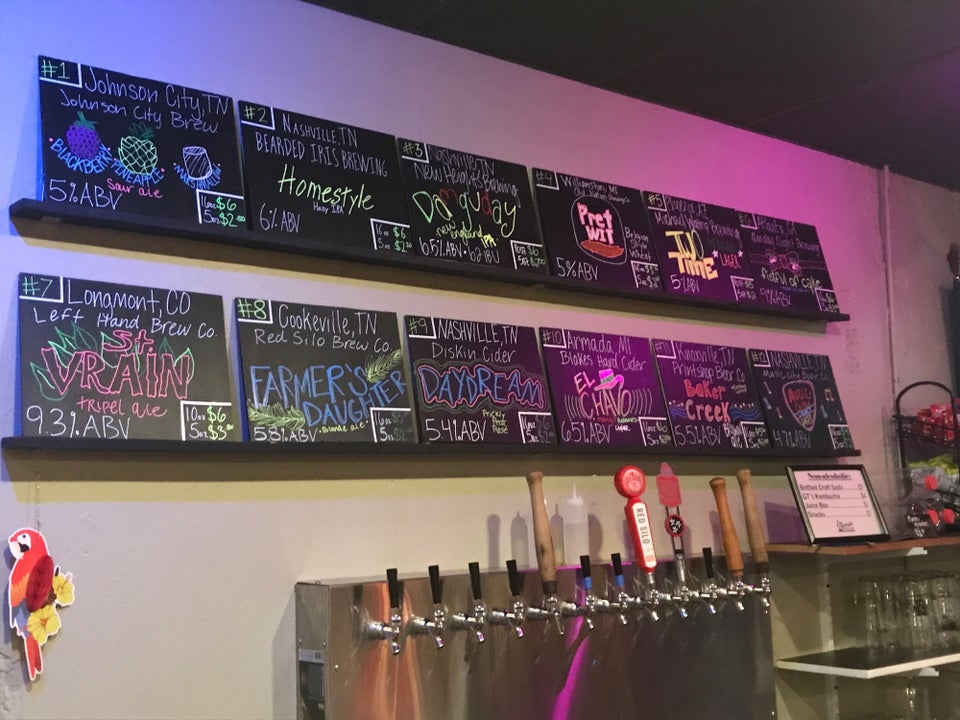 #1 Johnson City, TN
Johnson City Brew
BLACKBERRY
PINEAPPLE
MARSHMALLOW
Sour ale
5% ABV
16oz $6
5oz $2.50
#2 NASHVILLE, TN
BEARDED IRIS BREWING
Homestyle
Hazy IPA
6% ABV
16oz $6
5oz $2.50
#3 Nashville, TN
New Heights Brewing
Dayyday
new england IPA
6.5% ABV • 62 IBU
#4 Williamston, MI
Old Nation Brewing Co.
Pret
Wit
Belgian
Style
Wheat
5% ABV
#5
TWO
TIME
LAGER
5% ABV
Atlanta, GA
Monday Night Brewing
fistful of cake
#7 Longmont CO
Left Hand Brew Co.
St
VRAIN
tripel ale
9.3% ABV
10oz $6
5oz
#8 Cookeville, TN
Red Silo Brew Co.
FARMER'S
DAUGHTER
Blonde ale
5.8% ABV
16oz $6
#9 NASHVILLE, TN
Diskin Cider
DAYDREAM
Prickly
Pear
Rosé
5.4% ABV
#10 Armada, MI
Blakes Hard Cider
EL
CHAVO
6.5% ABV
#11 Knoxville, TN
Printshop Beer Co
Baker
Creek
5.5% ABV
NASHVILLE, TN
Music City Beer Co.
4.7% ABV
RED SILO
Non-alcoholic:
Bottled Craft Soda
GT's Kombucha
Juice Box
Snacks